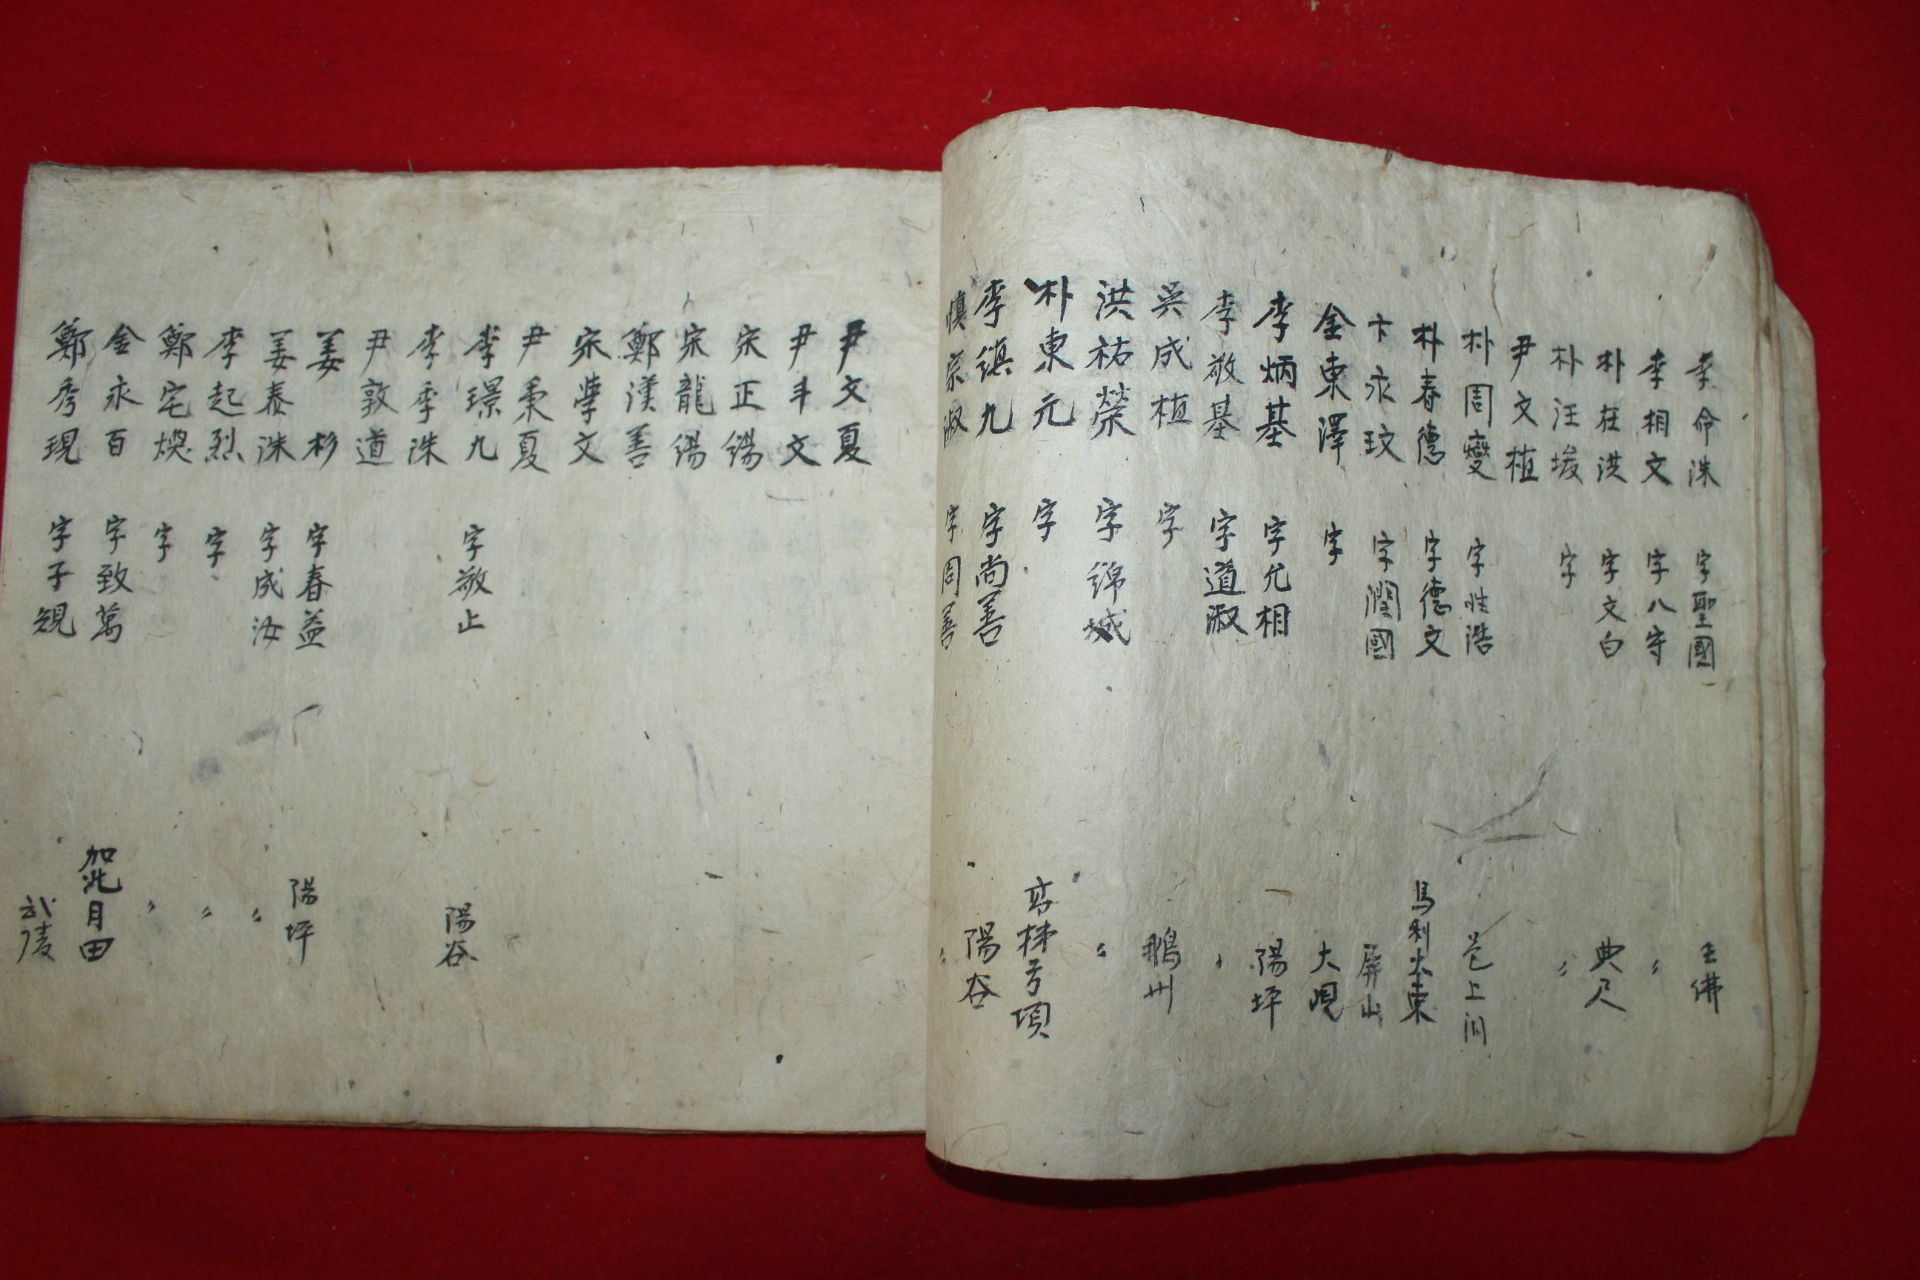 李命洙 字聖國 王佛
李相文 字八守 〃
朴在洪 字文白 典尺
朴汪埈 字 〃
尹文植
朴周燮 字性浩 上洞
朴春德 字德文 馬利火東
卞永玟 字潤國 屏山
金東澤 字 大峴
李炳基 字允相 陽坪
李敬基 字道淑 〃
吳成植 字 鵝州
洪祐榮 字錦城 〃
朴東元 字 項
李縝九 字尚善 陽谷
愼宗淑 字周善 〃
尹文夏
尹丰文
宋正錫
宋龍錫
鄭漢善
宋學文
尹秉夏
李璟九 字敬止 陽谷
李季洙
尹敦道
姜杉 字春益 陽坪
姜泰洙 字成汝 〃
李起烈 字 〃
鄭宅煥 字 〃
金永百 字致萬 加兆月田
鄭秀現 字子規 武陵